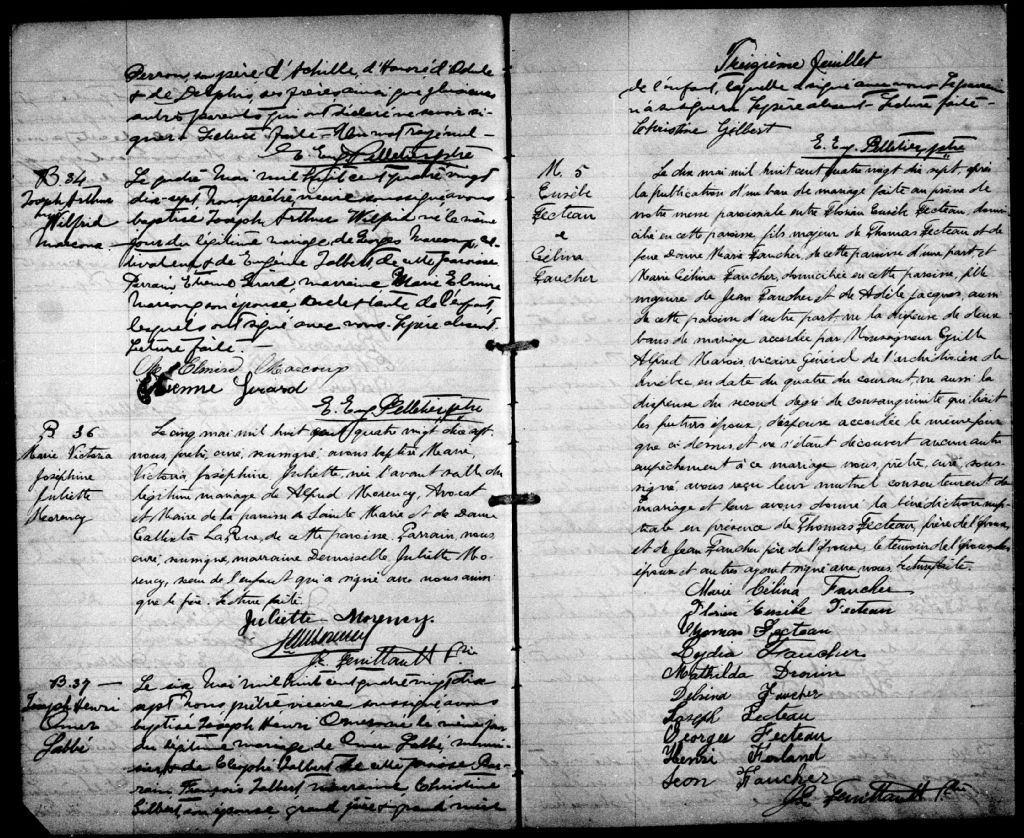 Perron, son père, d'Achille, d'Honoré, d'Odule
& de Delphis, ses frères ainsi que plusieurs
autres parents qui ont déclaré ne savoir si-
gner. Lecture faite.
E. Eug. Pelletier ptre
B. 34
Joseph Arthur
Wilfrid
Marcoux
Le quatre Mai mil huit cent quatre vingt
dix-sept nous prêtre vicaire soussigné avons
baptisé Joseph Arthur Wilfrid né le même
jour du légitime mariage de Georges Marcoux, cul-
tivateur & de Eugénie Talbert, de cette paroisse
Parrain Etienne Girard, marraine, Marie Elmire
Marcoux son épouse, de l'enfant,
lesquels ont signé avec nous. Le père absent.
Lecture faite.
M. Elmire Marcoux
Etienne Girard
E. Eug. Pelletier ptre
B. 36
Marie Victoria
Joséphine
Juliette
Morency
Le cinq mai mil huit cent quatre vingt dix sept
nous, prêtre, curé, soussigné, avons baptisé Marie,
Victoria, Joséphine, Juliette, née l'avant veille du
légitime mariage de Alfred Morency, Avocat
et Maire de la paroisse de Sainte Marie et de Dame
Callixta Larue, de cette paroisse. Parrain, nous
curé, soussigné, marraine Demoiselle Juliette Mo-
rency, sœur de l'enfant qui a signé avec nous ainsi
que le père. Lecture faite.
Juliette Morency.
Morency
B. 37
Joseph Henri
Omer
Labbé
Le six Mai mil huit cent quatre vingt dix
sept nous prêtre vicaire soussigné avons
baptisé Joseph Henri Omer né le même jour
du légitime mariage de Omer Labbé, menui-
sier & de Talbert de cette paroisse. Par-
rain François Talbert marraine Christine
Gilbert son épouse grand père & grand mère
Treizième feuillet
de l'enfant, laquelle a signé avec nous. Le parrain
n'a su signer. Le père absent. Lecture faite.
Christine Gilbert
E. Eug. Pelletier, ptre
M. 5
Eusèbe
Fecteau
&
Célina
Faucher
Le dix mai mil huit cent quatre vingt dix sept, après
la publication d'un ban de mariage faite au prône de
notre messe paroissiale entre Florien Eusèbe Fecteau, domi-
cilié en cette paroisse, fils majeur de Thomas Fecteau et de
feue Dame Marie Faucher, de cette paroisse d'une part, et
Marie Célina Faucher, domiciliée en cette paroisse, fille
majeure de Jean Faucher et de Adèle Jacques, aussi
de cette paroisse d'autre part, vu la dispense de deux
bans de mariage accordée par Monseigneur Cyrille
Alfred Marois, vicaire Général de l'archidiocèse de
Québec en date du quatre du courant, vu aussi la
dispense du second degré de consanguinité qui liait
les futurs époux, dispense accordée le même jour
que ci-dessus et ne s'étant découvert aucun autre
empêchement à ce mariage nous, prêtre, curé, sous-
signé avons reçu leur mutuel consentement de
mariage et leur avons donné la bénédiction nup-
tiale en présence de Thomas Fecteau, père de l'époux,
et de Jean Faucher père de l'épouse, le témoin de l'épouse, les
époux et autres ayant signé avec nous. Lecture faite.
Marie Célina Faucher
Florien Eusèbe Fecteau
Thomas Fecteau
Lydia Faucher
Mathilda Drouin
Delvina Faucher
Joseph Fecteau
Georges Fecteau
Henri Ferland
Jean Faucher